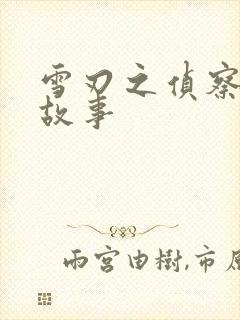 雪刃之偵察
故事
雨宮由樹,市原